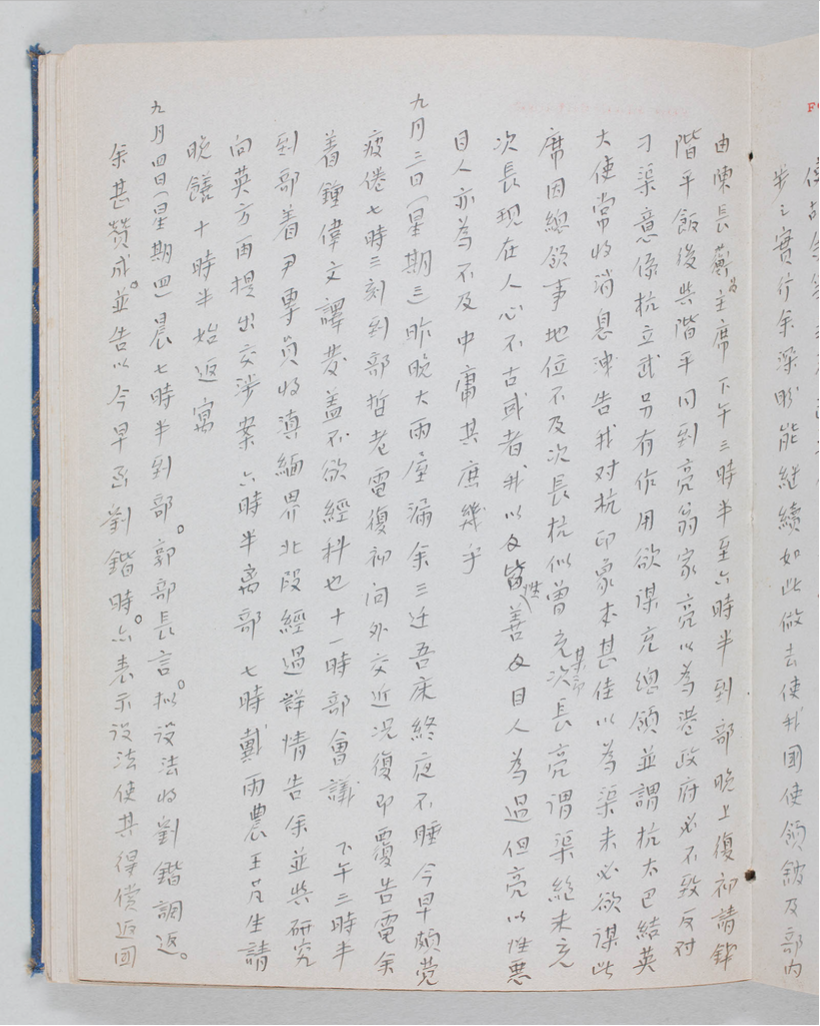 使
步之實行余深盼能繼續如此做去使我國使領館及部內
由陳長蘅為主席 下午三時半至六時半到部 晚上復初請
階平飯後與階平同到亮翁家亮以為港政府必不致反对
刁渠意係杭立武另有作用欲謀充總領並謂杭太巴結英
大使常收消息連告我对杭印象本甚佳以為渠未必欲謀此
席因總領事地位不及次長杭似曾充某部次長亮謂渠總未充
次長現在人心不古或者我以皆性善及目人為過但亮以性悪
目人亦為不及中庸其庶幾乎
九月三日(星期三)昨晚大雨屋漏余三迁吾床終夜不睡今早頗觉
疲倦七時三刻到部哲老電復初问外交近况復即覆告電余
着鍾偉文譯发盖不欲經科也十一時部會議 下午三時半
到部着尹專員收滇緬界北段經過詳情告余並與研究
向英方再提出交涉案六時半离部 七時戴雨農王芃生請
晚饍十時半始返寓
九月四日(星期四)晨七時半到部。郭部長言。拟設法收劉鍇調返。
余甚赞成。並告以今早函劉鍇時。亦表示设法使其得償返囬